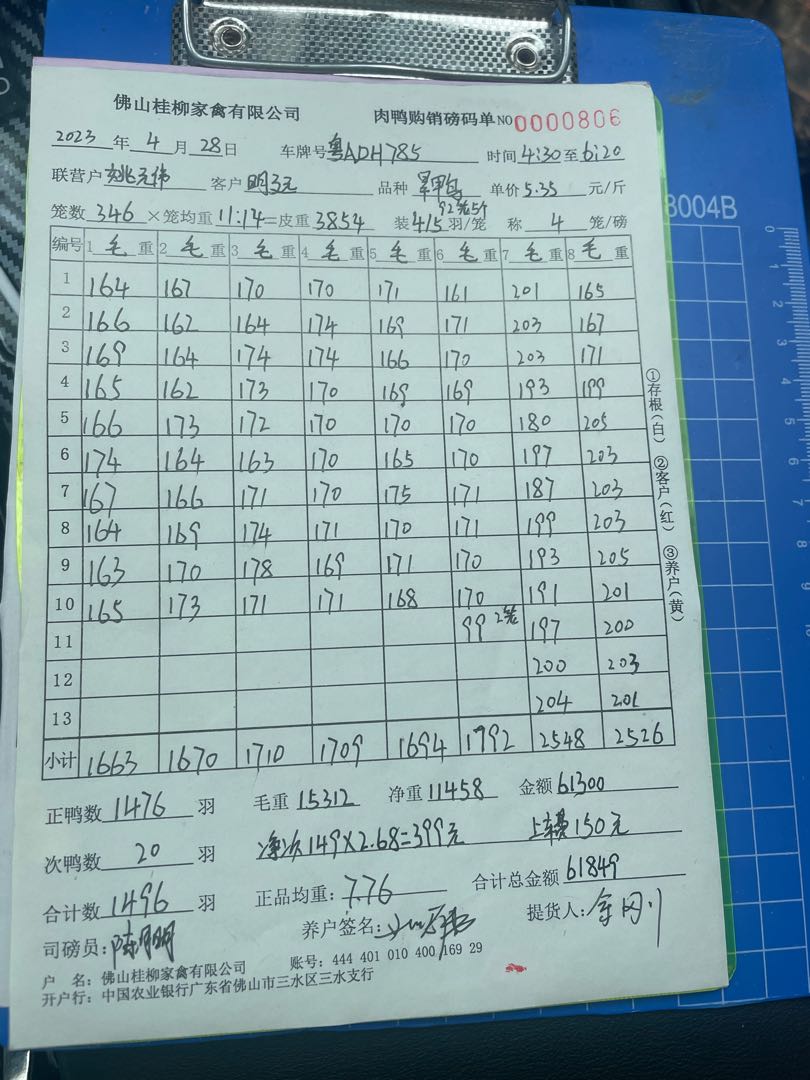 佛山桂柳家禽有限公司 肉鸭购销磅码单 NO 0000806
2023 年 4 月 28 日 车牌号 粤ADH785 时间 4:30 至 6:20
联营户 客户 品种 单价 5.35 元/斤
92笼5个
笼数 346 ×笼均重 11.14 =皮重 3854 装 4/5 羽/笼 称 4 笼/磅
编号 1 毛 重 2 毛 重 3 毛 重 4 毛 重 5 毛 重 6 毛 重 7 毛 重 8 毛 重
1 164 167 170 170 171 161 201 165
2 166 162 164 174 169 171 203 167
3 169 164 174 174 166 170 203 171
4 165 162 173 170 169 169 193 199
5 166 173 172 170 170 170 180 205
6 174 164 163 170 165 170 197 203
7 167 166 171 170 175 171 187 203
8 164 169 174 171 170 171 199 203
9 163 170 178 169 171 170 193 205
10 165 173 171 171 168 170 191 201
11 99 2笼 197 200
12 200 203
13 204 201
小计 1663 1670 1710 1709 1694 1792 2548 2526
正鸭数 1476 羽 毛重 15312 净重 11458 金额 61300
次鸭数 20 羽 净次 149×2.68=399元 上车费 150元
合计数 1496 羽 正品均重: 7.76 合计总金额 61849
司磅员: 养户签名: 提货人:
户 名: 佛山桂柳家禽有限公司 账号: 444 401 010 400 169 29
开户行: 中国农业银行广东省佛山市三水区三水支行
①存根(白) ②客户(红) ③养户(黄)
8004B
0
1
2
3
4
5
6
7
8
9